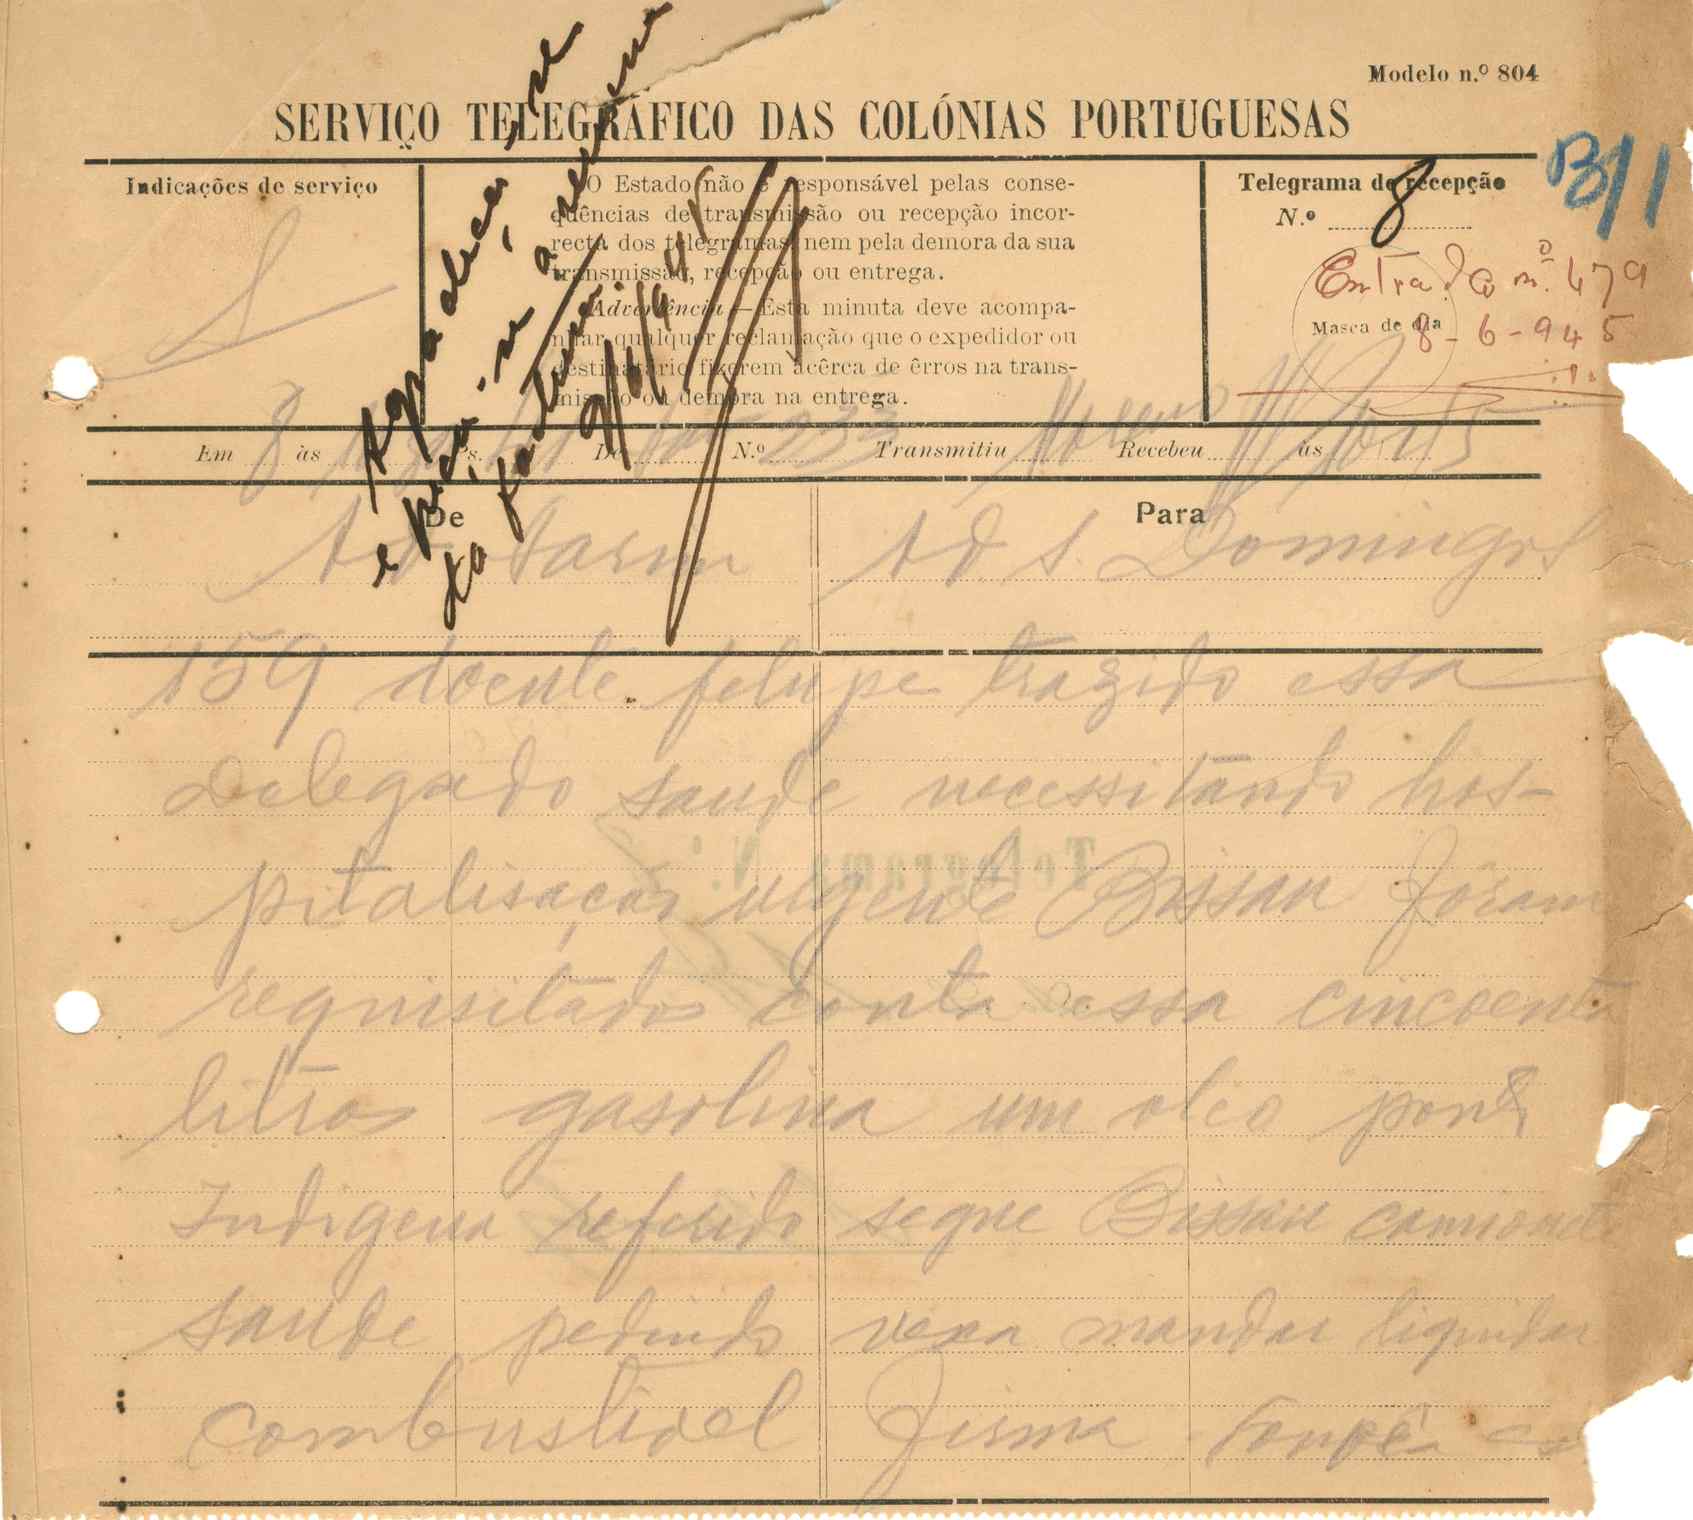 Modelo n.º 804
SERVIÇO TELEGRÁFICO DAS COLÓNIAS PORTUGUESAS
B/1
Indicações de serviço
S
O Estado não é responsável pelas conse-
quências de transmissão ou recepção incor-
recta dos telegramas, nem pela demora da sua
transmissão, recepção ou entrega.
Advertência — Esta minuta deve acompa-
nhar qualquer reclamação que o expedidor ou
destinatário fizerem acêrca de êrros na trans-
missão ou demora na entrega.
Telegrama de recepção
N.º 8
Entrada nº 479
Marca de dia
8-6-945
Agradeça-se
e peça-se a remessa
da factura.
9/6/945
Em 8 às De N.º 233 Transmitiu Recebeu às
De
Para
Ad Farim
Ad. S. Domingos
159 doente felupe trazido essa
Delegado saude necessitando hos-
pitalisação urgente Bissau Foram
requisitados conta essa cincoenta
litros gasolina um oleo ponto
Indigena referido segue Bissau camionete
saude pedindo vexa mandar liquidar
combustivel Firma